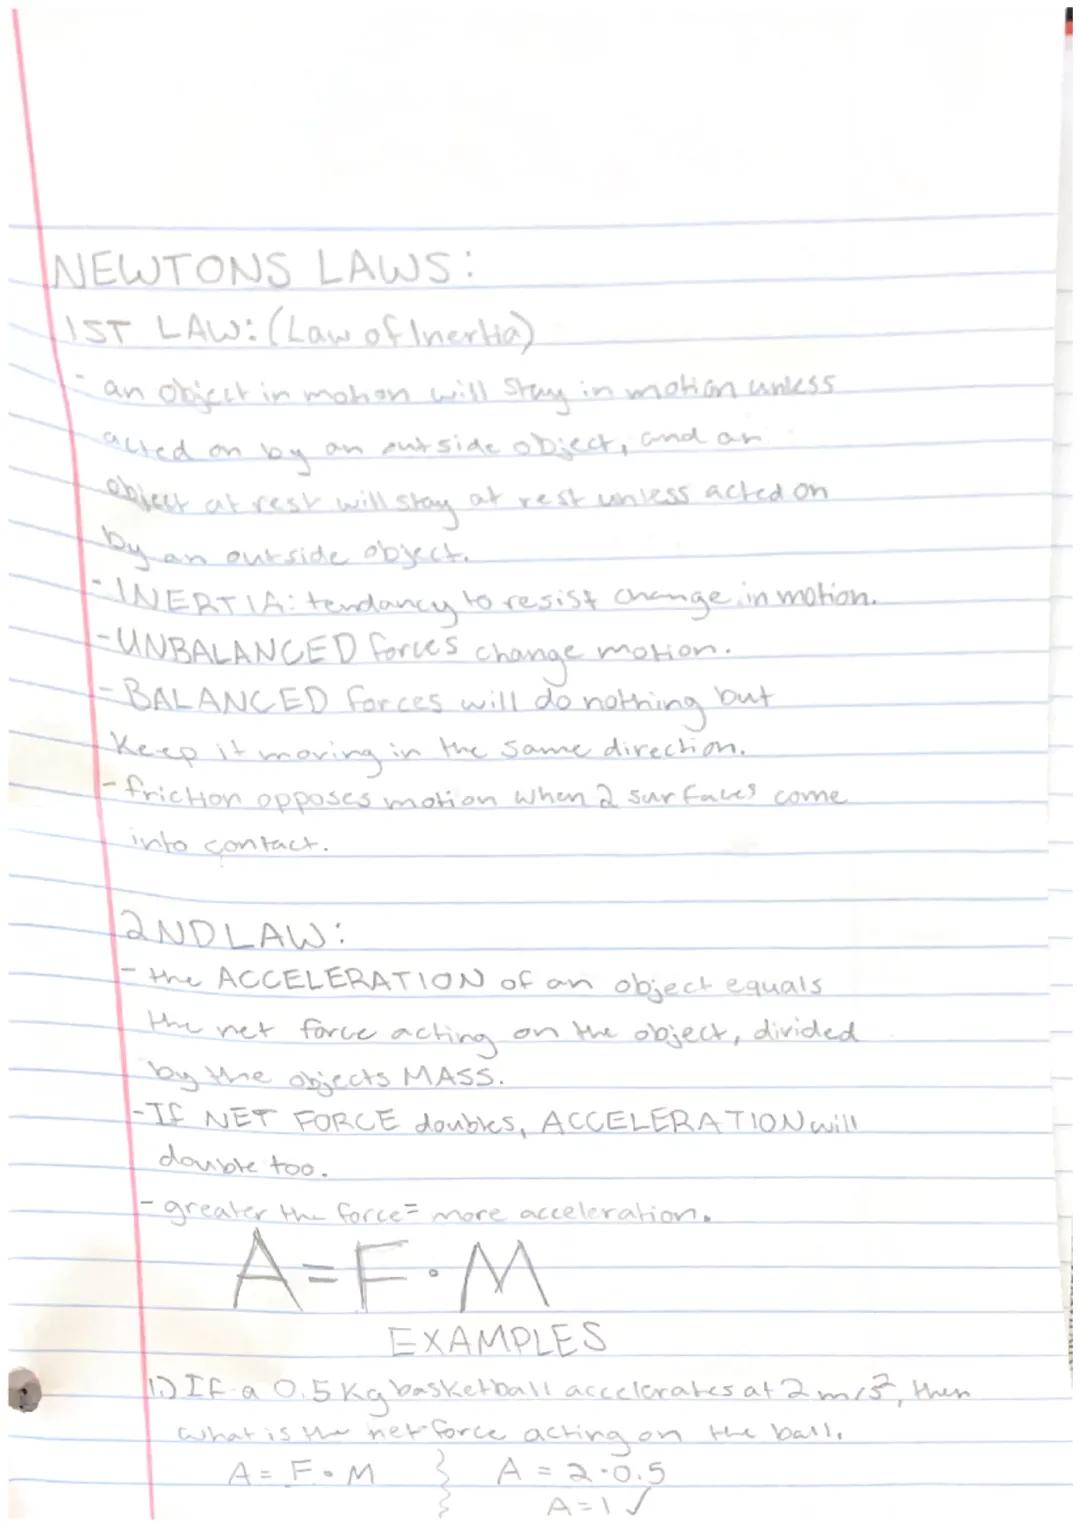 NEWTONS LAWS:
1ST LAW: (Law of Inertia)
- an object in motion will stay in motion unless
acted on by an outside object, and an
object at rest will stay at rest unless acted on
by an outside object.
- INERTIA: tendancy to resist change in motion.
- UNBALANCED forces change motion.
- BALANCED forces will do nothing but
keep it moving in the same direction.
- friction opposes motion when 2 surfaces come
into contact.
2ND LAW:
- the ACCELERATION of an object equals
the net force acting on the object, divided
by the objects MASS.
- If NET FORCE doubles, ACCELERATION will
double too.
- greater the force = more acceleration.
A=F·M
EXAMPLES
1.) If a 0.5 Kg basketball accelerates at 2 m/s², then
what is the net force acting on the ball.
A = F·M } A = 2·0.5
A=1 ✓